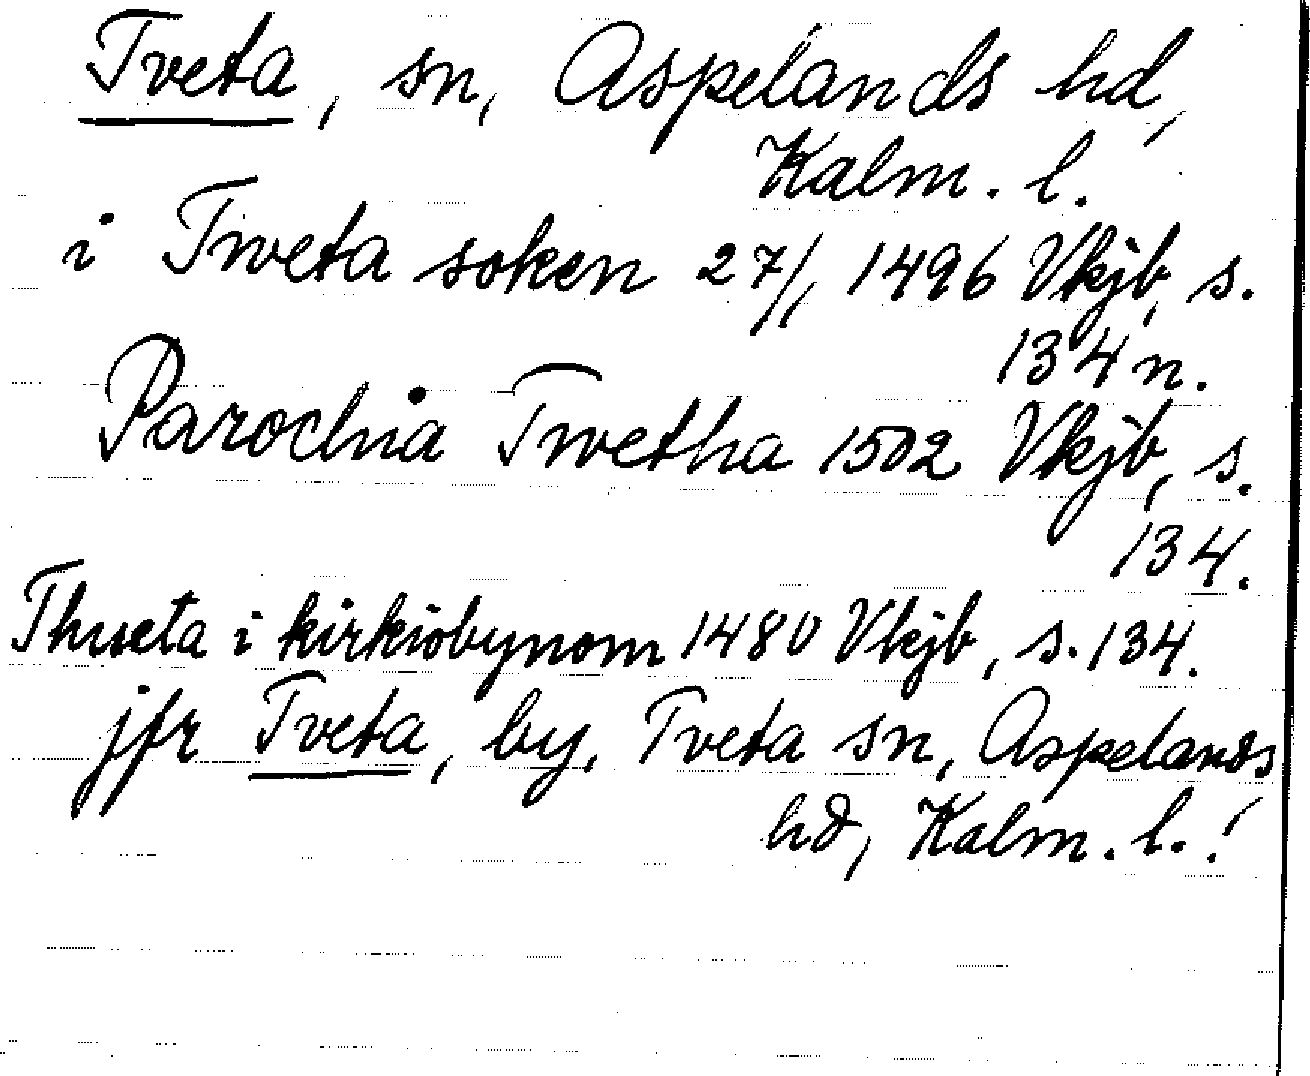 Tveta, sn, Aspelands hd,
Kalm. l.
i Tweta soken 27/1 1496 Vkjb, s.
134 n.
Parochia Twetha 1502 Vkjb, s.
134.
Thueta i kirkiobynom 1480 Vkjb, s. 134.
jfr Tveta, by, Tveta sn, Aspelands
hd, Kalm. l.!